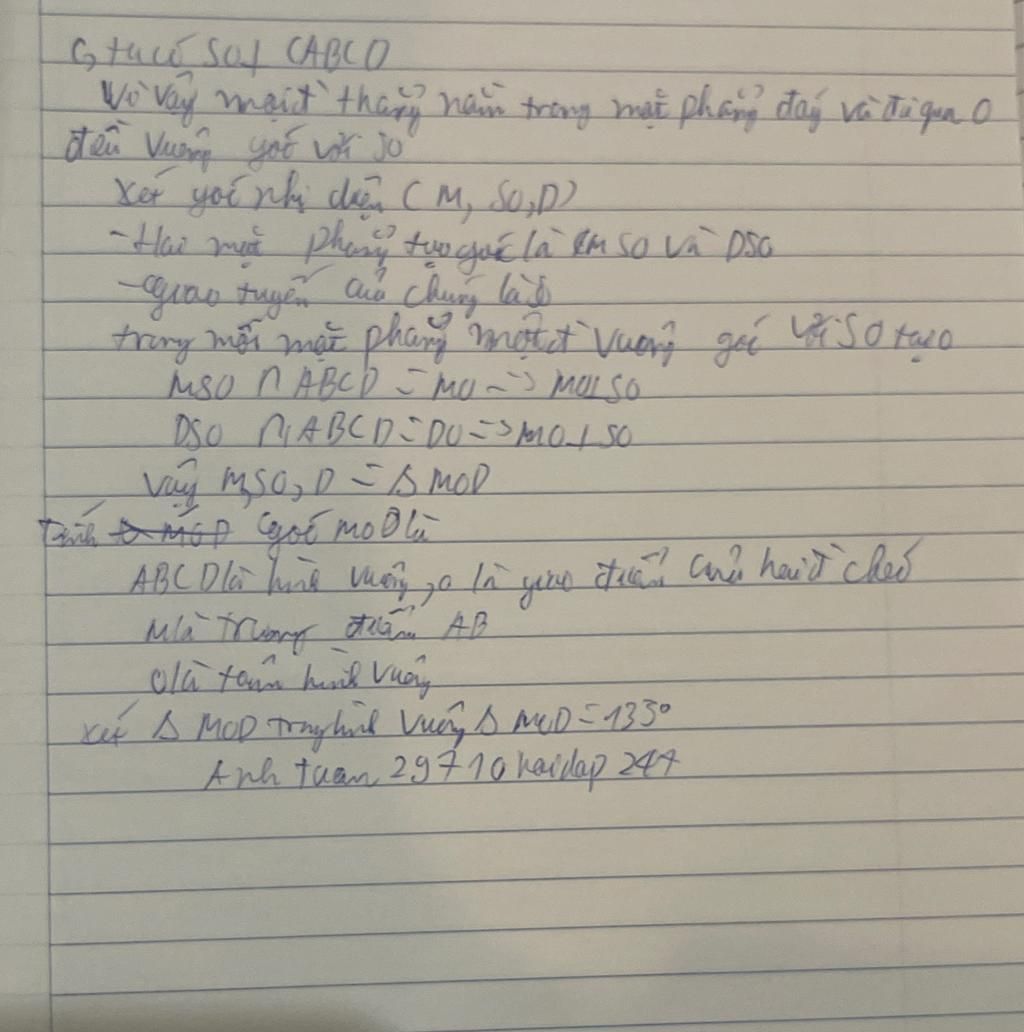 G, ta có SO⊥ (ABCD
Vì vậy mọi đt thẳng nằm trong mặt phẳng đáy và đi qua O
đều vuông góc với SO
Xét góc nhị diện (M, SO, D)
-Hai mặt phẳng tạo góc là MSO và DSO
-giao tuyến của chúng là
trong mỗi mặt phẳng một đt vuông góc với SO tạo
MSO ∩ ABCD = MO => MO⊥SO
DSO ∩ ABCD = DO => MO⊥SO
Vậy M,SO,D = Δ MOD
Tính góc MOD là
ABCD là hình vuông, O là giao điểm của hai đt chéo
M là trung điểm AB
O là tâm hình vuông
xét Δ MOD trong hình vuông Δ MOD = 135°
Anh tuan 29710 hoidap 247